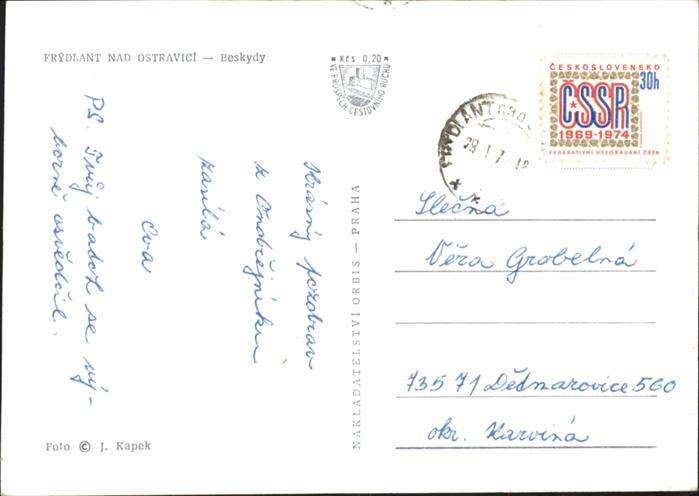 FRÝDLANT NAD OSTRAVICÍ — Beskydy
Kčs 0,20
VE PROSPĚCH CESTOVNÍHO RUCHU
ČESKOSLOVENSKO
30h
ČSSR
1969·1974
FEDERATIVNÍ USPOŘÁDÁNÍ ČSSR
FRÝDLANT nad
29. I. 7
Krásný pozdrav
z Ondřejníku
zasílá
Eva
PS. Tvůj batoh se vý-
borně osvědčil.
NAKLADATELSTVÍ ORBIS — PRAHA
Slečna
Věra Grobelná
735 71 Dětmarovice 560
okr. Karviná
Foto © J. Kapek